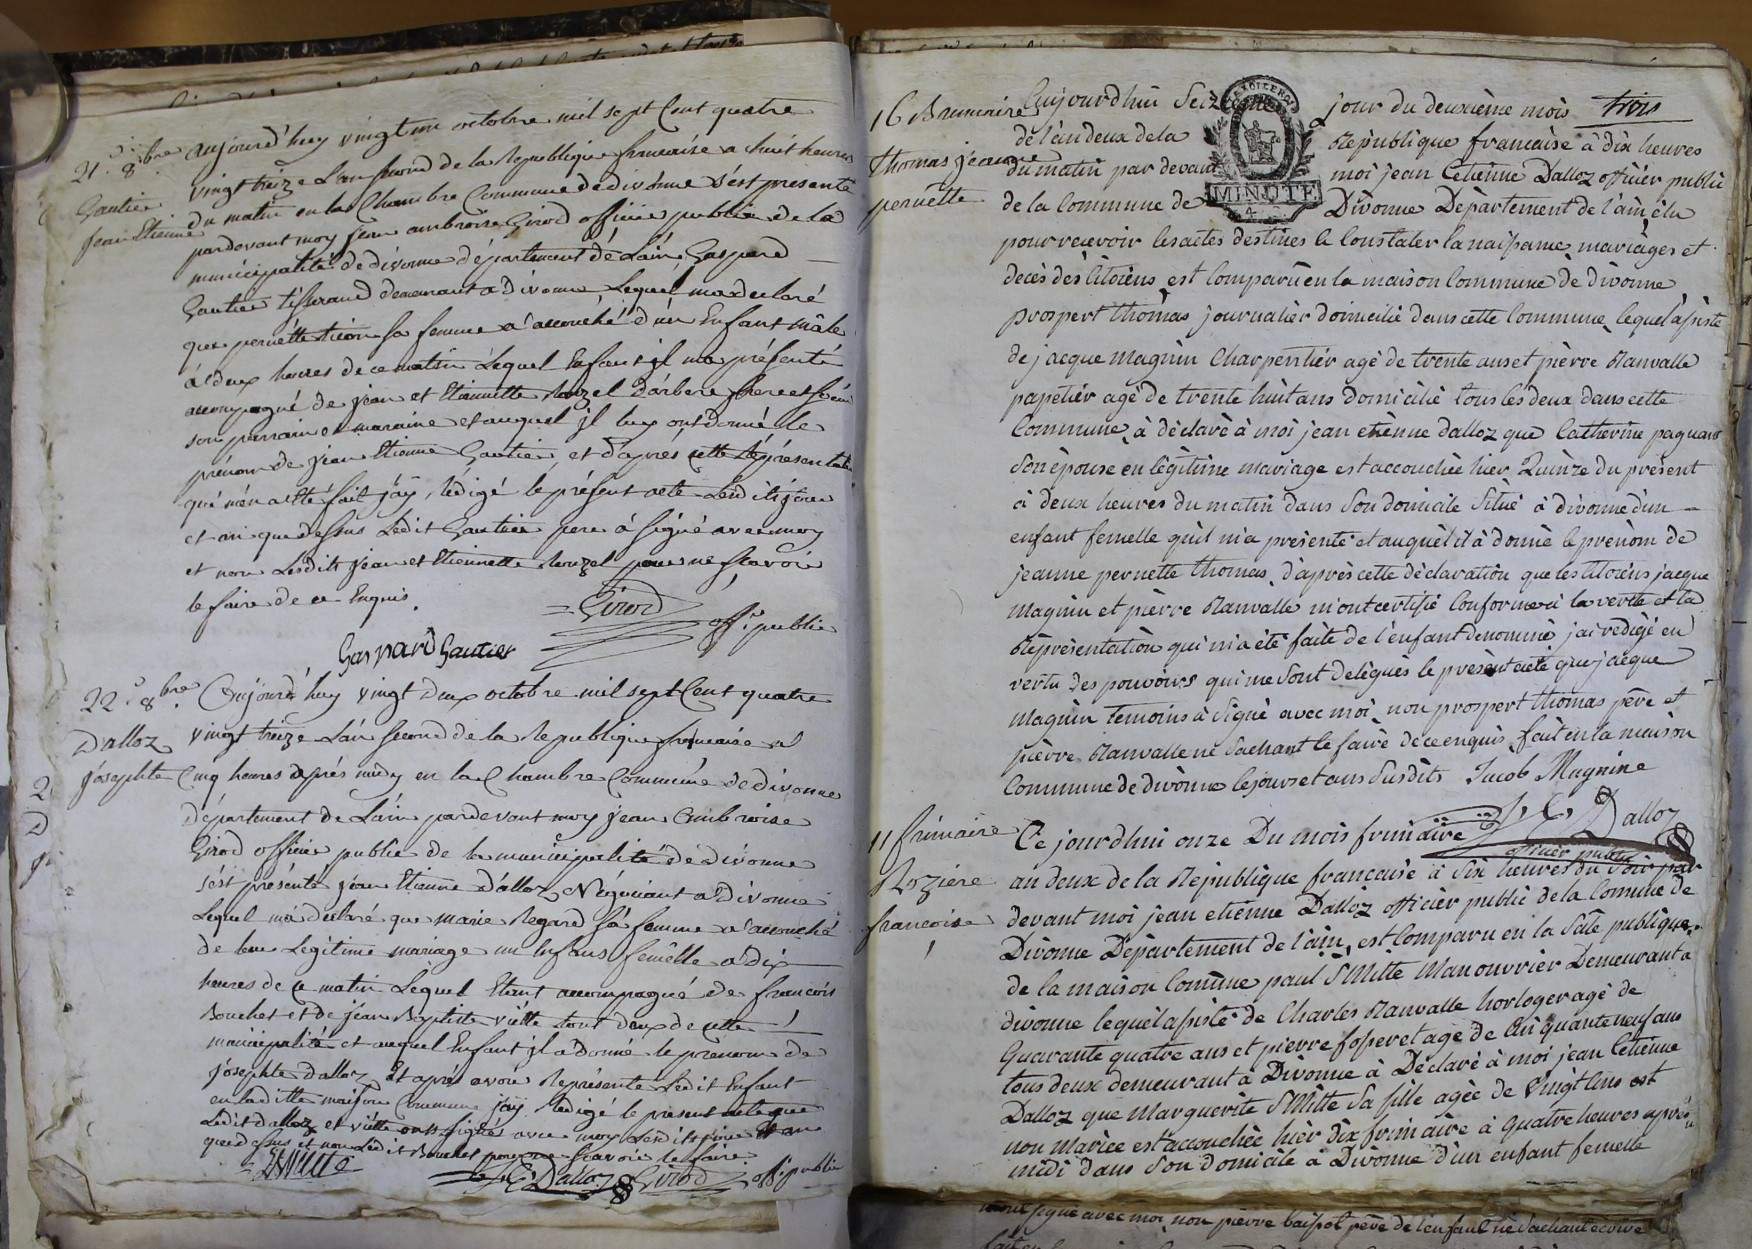 21 8bre
Gautier
Jean Etienne
aujourd'huy vingt un octobre mil sept Cent quatre
vingt treize L'an second de la Republique francaise a huit heures
du matin en la Chambre Commune de divonne s'est presenté
pardevant moy jean ambroise Girod officier public de la
municipalité de divonne département de L'ain, Gaspard
Gautier tisserand demeurant a divonne, Lequel m'a declaré
que pernette sa femme a accouché d'un Enfant mâle
à deux heures de ce matin Lequel Enfant il m'a présenté
accompagné de jean et Etiennette
son parrain et maraine et auquel il luy ont donné le
prénom de jean Etienne Gautier, et d'aprés cette représentation
qui m'en a Eté fait j'aÿ rédigé le présent acte Lesd it jour
et an que dessus Ledit Gautier pere à signé avec moy
et non Lesdits jean et Etiennette pour ne scavoir
le faire de ce Enquis.
Girod off. public
Gaspard Gautier
22 8bre
Dalloz
josephte
Aujourd'huy vingt deux octobre mil sept Cent quatre
vingt treize L'an second de la Republique francaise a
Cinq heures aprés midy en la Chambre Commune de divonne
département de L'ain pardevant moy jean Ambroise
Girod officier public de la municipalité de divonne
s'est présenté jean Etienne dalloz Négociant a divonne
Lequel m'a declaré que marie Regard sa femme a accouché
de leur Légitime mariage un Enfans femêlle a dix
heures de ce matin Lequel Etant accompagné de francois
Bouchet et de jean Baptiste viëtte tout deux de cette
municipalité et auquel Enfant il a donné le prenom de
josephte dalloz Et aprés avoir Représenté Ledit Enfant
en laditte maison Commune j'aÿ Rédigé le present acte que
Ledit dalloz et viëtte ont signés avec moy Lesdits jour et an
que dessus et non Ledit Bouchet pour ne scavoir le faire
Viëtte J. E. Dalloz Girod off. public
16 Brumaire
thomas jeanne
pernette
trois
MINUTE
Aujourd'hui Seizieme jour du deuxième mois
de l'an deux de la République française à dix heures
du matin par devant moi jean Etienne Dalloz officier public
de la Commune de Divonne Département de l'ain élu
pour recevoir les actes destinés à Constater la naissance, mariages et
décès des Citoiens, est Comparu en la maison Commune de divonne
prospert thomas journalier domicilié dans cette Commune, lequel assisté
de jacque magnin Charpentier agé de trente ans et pièrre Ranvalle
papetiér agé de trente huit ans domicilié tous les deux dans cette
Commune, à déclaré à moi jean etiènne dalloz que Catherine
son épouse en légitime mariage est accouchée hier Quinze du présent
à deux heures du matin dans son domicile situé à divonne d'un
enfant femelle qu'il m'a présenté et auquel il à donné le prénom de
jeanne pernette thomas, d'après cette déclaration que les Citoiens jacque
magnin et pièrre Ranvalle m'ont certifié Conforme à la verité et la
Réprésentation qui m'a été faite de l'enfant dénommé, j'ai rédigé en
vertu des pouvoirs qui me sont délégués le présent acte que jacque
magnin temoins à signé avec moi, non prospert thomas père et
pièrre Ranvalle ne sachant le faire de ce enquis, fait en la maison
Commune de divonne les jours et ans susdits Jacob Magnine
J. E. Dalloz
officier public
11 frimaire
Rozière
francoise
Ce jourd'hui onze Du mois frimaire
an deux de la République française à six heures du soir par
devant moi jean etiénne Dalloz officier public de la Comune de
Divonne Département de l'ain, est Comparu en la Sale publique
de la maison Comune paul Manouvrier Demeurant a
divonne lequel assisté de Charles Ranvalle horloger agé de
Quarante quatre ans et pierre fosseret agé de Cinquante neuf ans
tous deux demeurant à Divonne à Déclaré à moi jean Etiénne
Dalloz que Marguerite Sa fille agée de Vingt Cinq est
non mariée est accouchée hier dix frimaire à quatre heures après
midi dans son domicile à Divonne d'un enfant femelle
signé avec moi non pierre père de l'enfant ne sachant ecrire